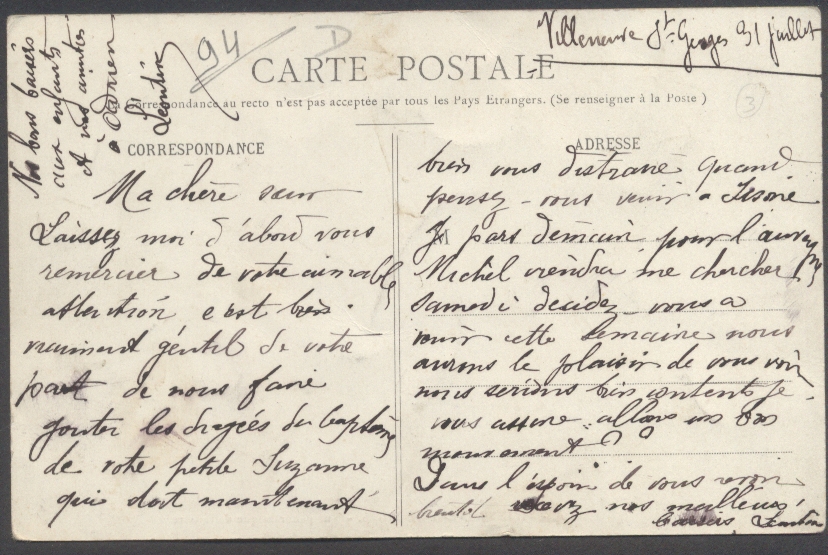 Villeneuve St Georges 31 juillet
94
D
CARTE POSTALE
La Correspondance au recto n'est pas acceptée par tous les Pays Etrangers. (Se renseigner à la Poste)
3
CORRESPONDANCE
Ma chère sœur
Laissez moi d'abord vous
remercier de votre aimable
attention c'est bien
vraiment gentil de votre
part de nous faire
gouter les dragées du baptême
de votre petite Suzanne
qui doit maintenant
ADRESSE
bien vous distraire quand
pensez-vous venir a
Je pars demain pour
Michel viendra me chercher
samedi decidez vous a
venir cette semaine nous
aurons le plaisir de vous voir
nous serions bien contents je
vous assure allons un bon
mouvement ??
Dans l'espoir de vous revoir
bientot recevez nos meilleurs
baisers, Leontine
Nos bons baisers
aux enfants
et nos amitiés
à Adrien
Leontine